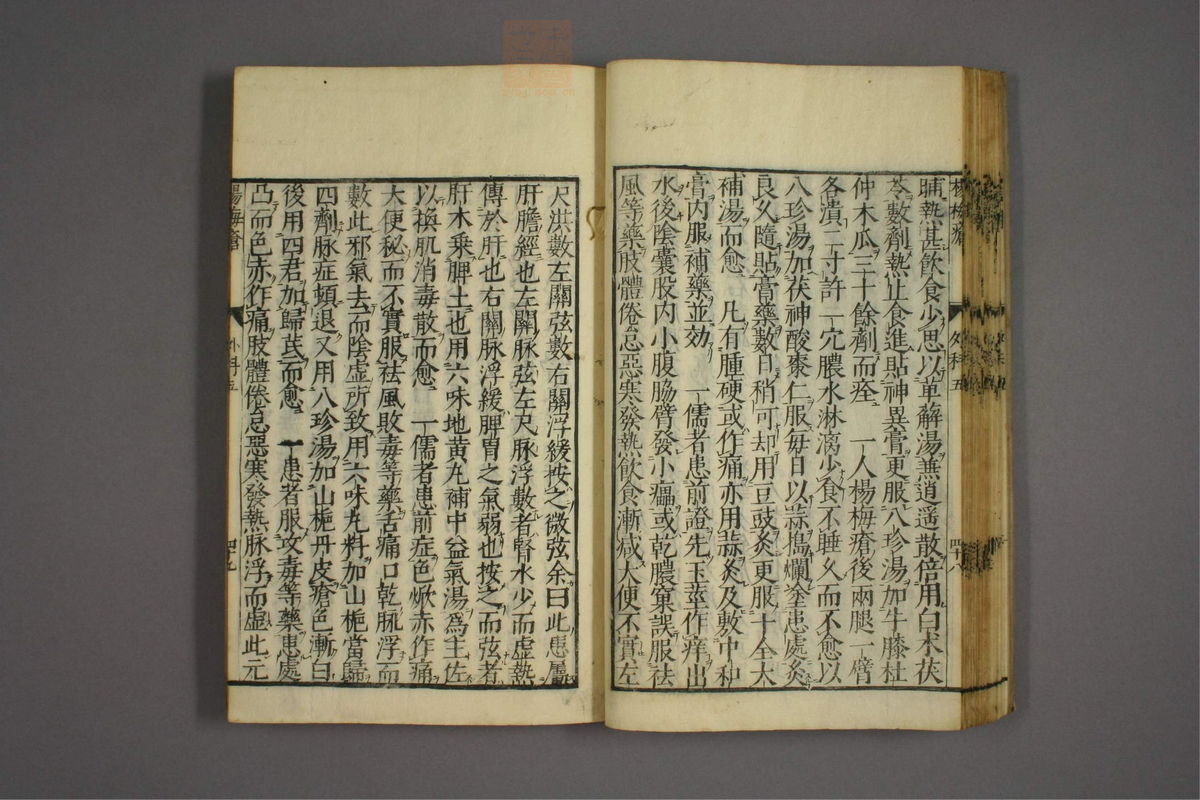 晡熱甚飲食少思以萆薢湯兼逍遥散倍用白术茯
苓數劑熱止食進貼神異膏更服八珍湯加牛膝杜
仲木瓜三十餘劑而痊　一人楊梅瘡後兩腿一臂
各潰二寸許一穴膿水淋漓少食不睡久而不愈以
八珍湯加茯神酸棗仁服每日以蒜搗爛塗患處灸
良久隨貼膏藥數日稍可却用豆豉灸更服十全大
補湯而愈　凡有腫硬或作痛亦用蒜灸及敷冲和
膏内服補藥並効　一儒者患前證先玉莖作痒出
水後陰囊股内小腹脇臂發小瘟或乾膿窠誤服祛
風等藥肢體倦怠惡寒發熱飲食漸减大便不實左
尺洪數左關弦數右關浮緩按之微弦余曰此患屬
肝膽經也左關脉弦左尺脉浮數者腎水少而虚熱
傳於肝也右關脉浮緩脾胃之氣弱也按之而弦者
肝木乗脾土也用六味地黄丸補中益氣湯爲主佐
以換肌消毒散而愈　一儒者患前症色焮赤作痛
大便秘而不實服祛風敗毒等藥舌痛口乾脉浮而
數此邪氣去而陰虚所致用六味丸料加山梔當歸
四劑脉症頓退又用八珍湯加山梔丹皮瘡色漸白
後用四君加歸芪而愈　一患者服攻毒等藥患處
凸而色赤作痛肢體倦怠惡寒發熱脉浮而虚此元
楊梅瘡
外科五
四十八
楊梅瘡
外科五
四十九